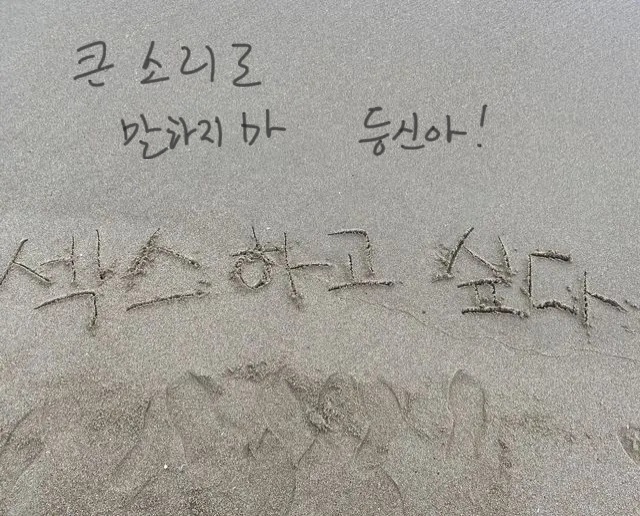 큰 소리로
말하지 마 등신아!
섹스하고 싶다